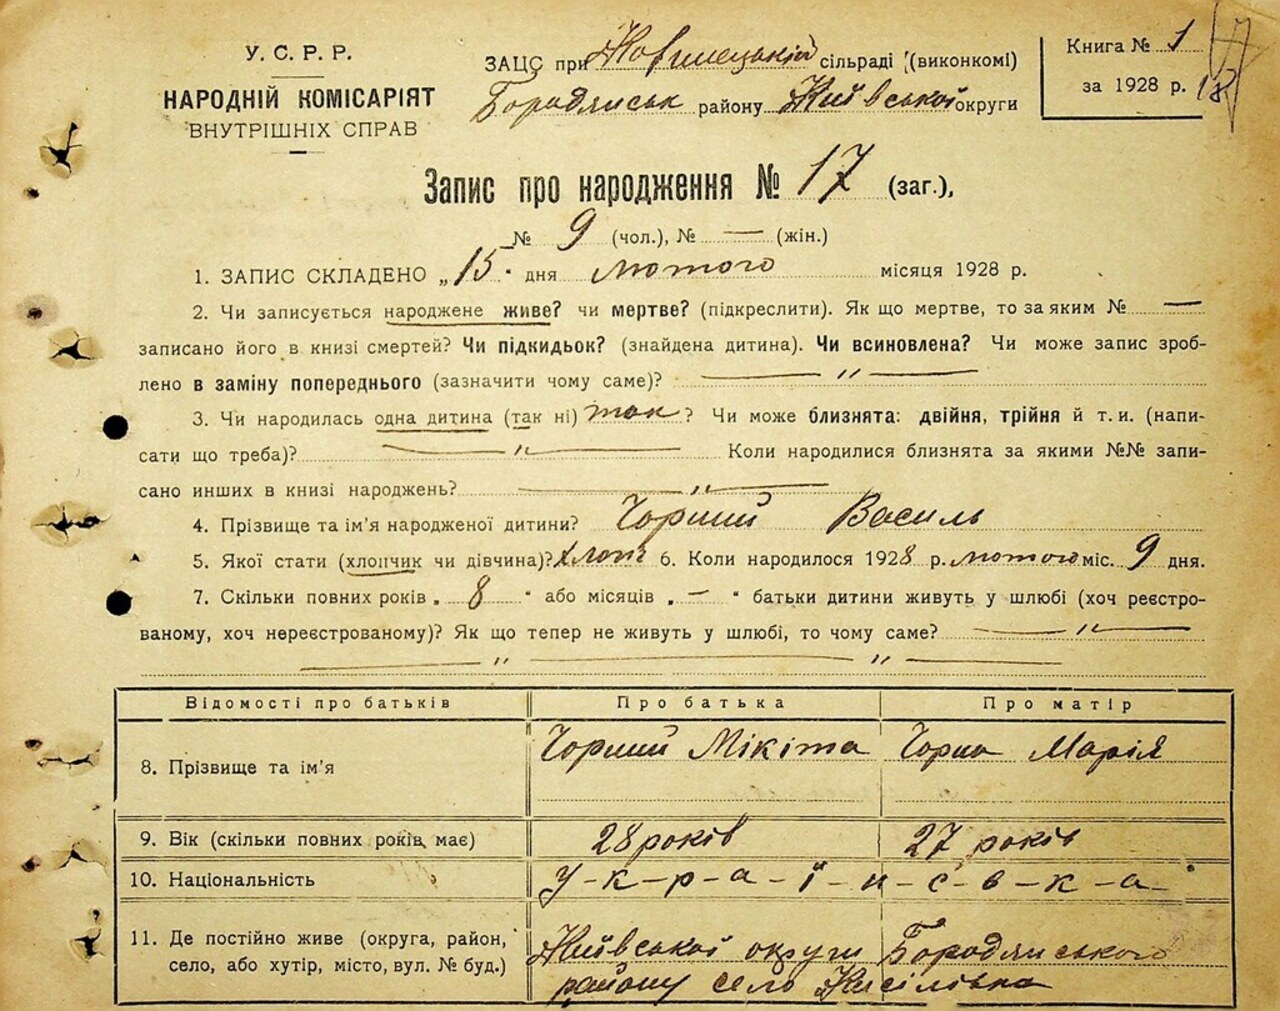 У. С. Р. Р.
НАРОДНІЙ КОМІСАРІЯТ
ВНУТРІШНІХ СПРАВ
ЗАЦС при сільраді (виконкомі)
Бородянськ району Київської округи
Книга № 1
за 1928 р.
Запис про народження № 17 (заг.),
№ 9 (чол.), № — (жін.)
1. ЗАПИС СКЛАДЕНО „15" дня лютого місяця 1928 р.
2. Чи записується народжене живе? чи мертве? (підкреслити). Як що мертве, то за яким № —
записано його в книзі смертей? Чи підкидьок? (знайдена дитина). Чи всиновлена? Чи може запис зроб-
лено в заміну попереднього (зазначити чому саме)? — „ —
3. Чи народилась одна дитина (так ні) так ? Чи може близнята: двійня, трійня й т. и. (напи-
сати що треба)? — „ — Коли народилися близнята за якими №№ запи-
сано инших в книзі народжень? — „ —
4. Прізвище та ім'я народженої дитини? Чорний Василь
5. Якої стати (хлопчик чи дівчина)? хлоп 6. Коли народилося 1928 р. лютого міс. 9 дня.
7. Скільки повних років „ 8 " або місяців „ — " батьки дитини живуть у шлюбі (хоч реєстро-
ваному, хоч нереєстрованому)? Як що тепер не живуть у шлюбі, то чому саме? — „ —
— „ — „ —
Відомості про батьків Про батька Про матір
8. Прізвище та ім'я Чорний Мікіта Чорна Марія
9. Вік (скільки повних років має) 28 років 27 років
10. Національність У-к-р-а-ї-н-с-ь-к-а
11. Де постійно живе (округа, район, Київської округи Бородянського
село, або хутір, місто, вул. № буд.) району село